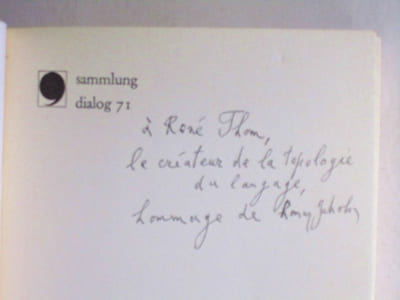 sammlung
dialog 71
à René Thom,
le créateur de la topologie
du langage,
hommage de